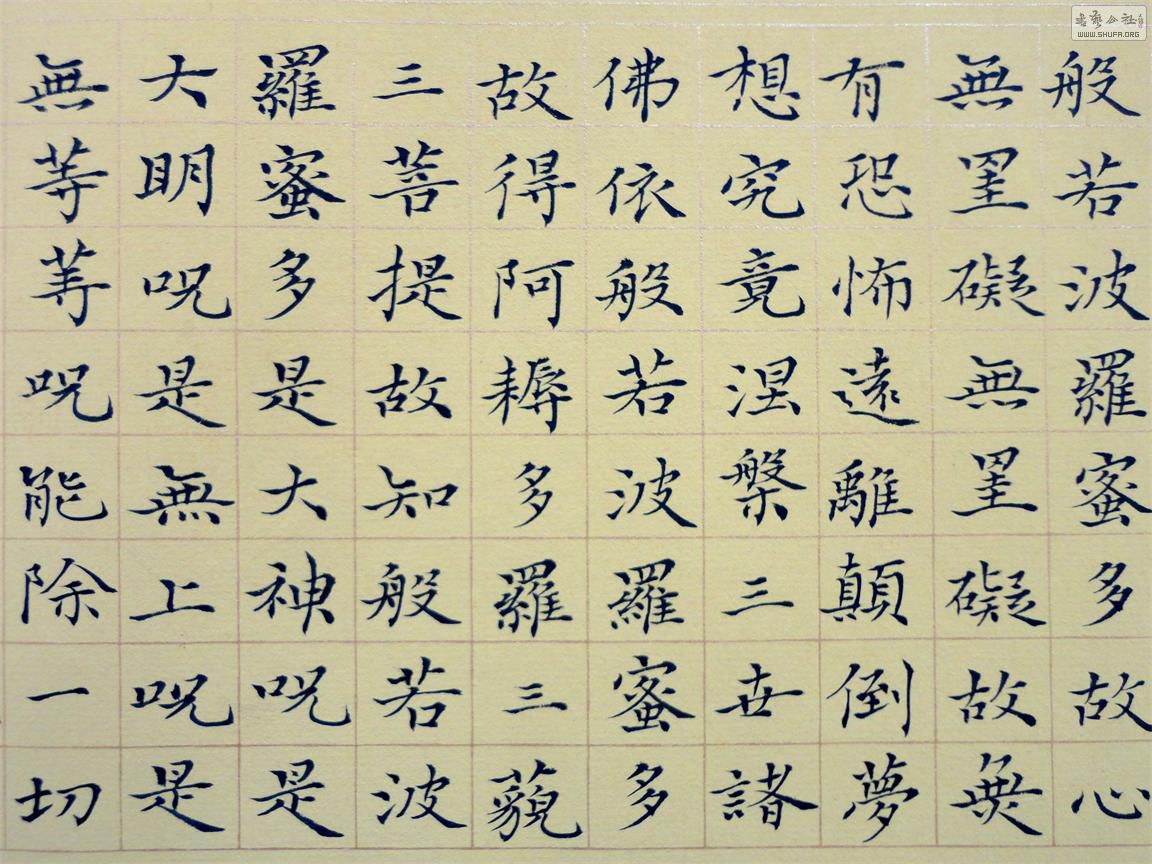 般若波羅蜜多故心
無罣礙無罣礙故無
有恐怖遠離顛倒夢
想究竟涅槃三世諸
佛依般若波羅蜜多
故得阿耨多羅三藐
三菩提故知般若波
羅蜜多是大神咒是
大明咒是無上咒是
無等等咒能除一切
書藝公社
WWW.SHUFA.ORG